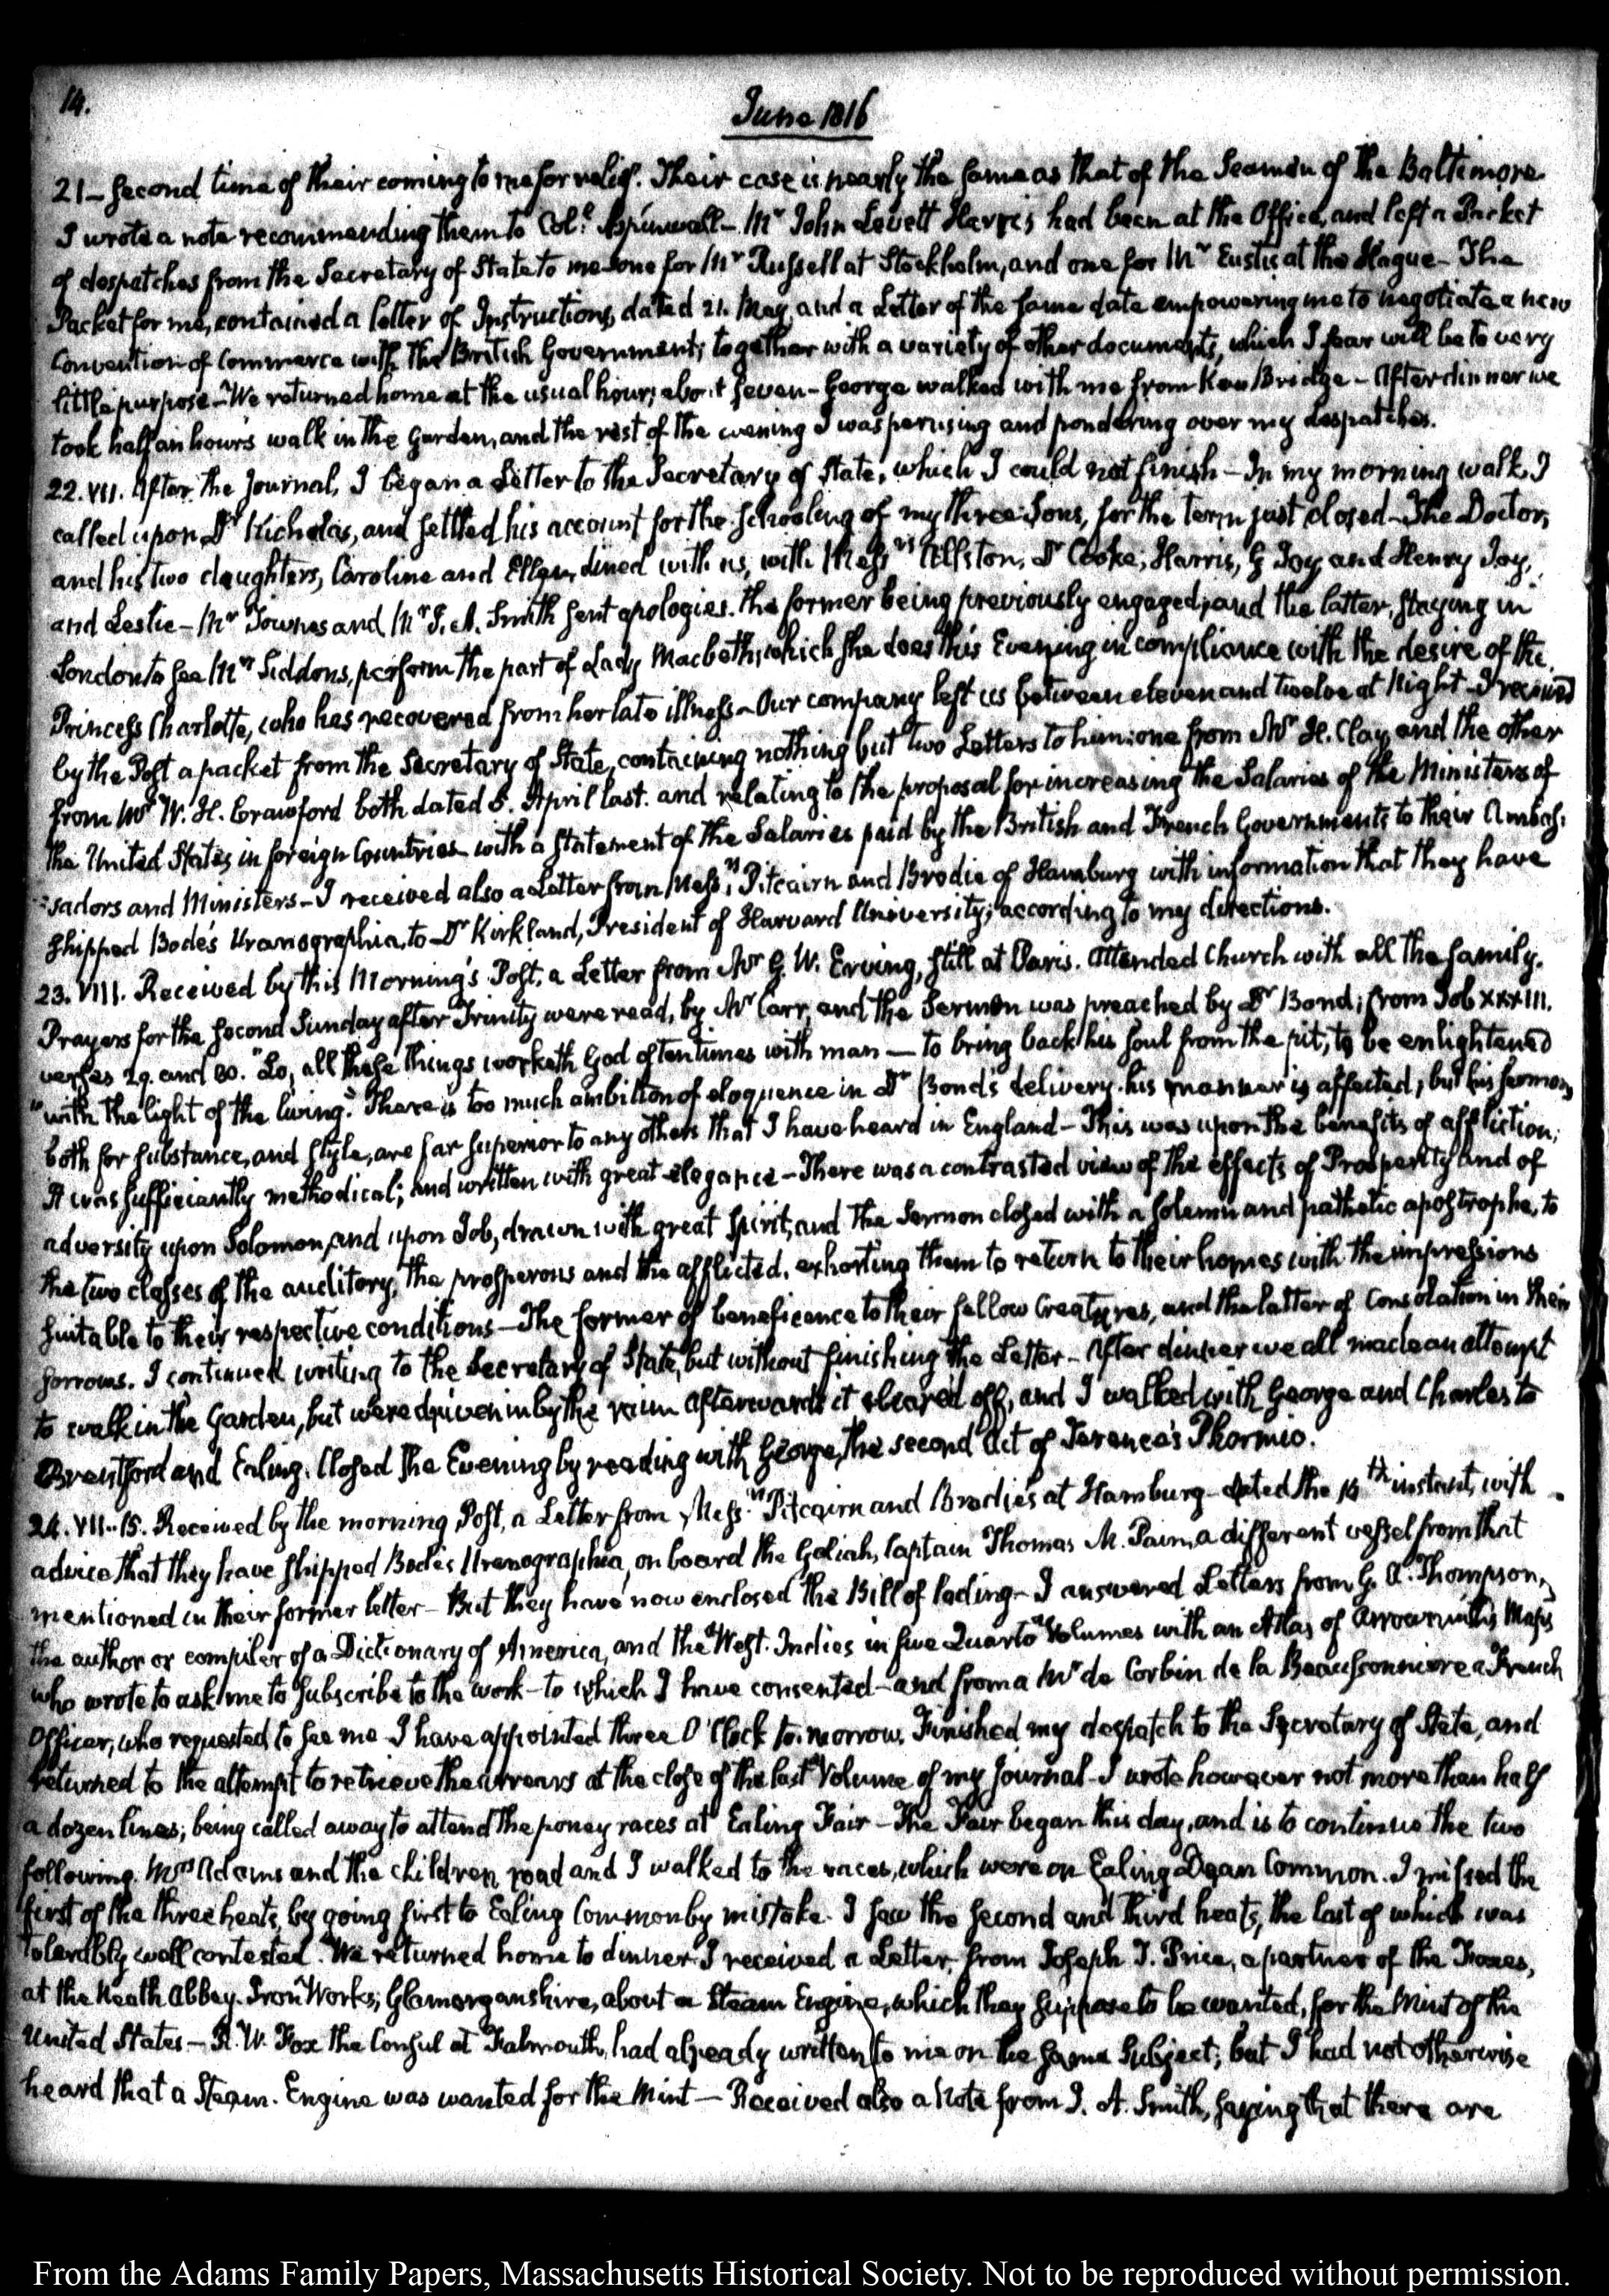 14.
June 1816
21 – Second time of their coming to me for relief. Their case is nearly the same as that of the Seamen of the Baltimore.
I wrote a note recommending them to Col.l Aspinwall – Mr John Levett Harris had been at the Office, and left a Packet
of despatches from the Secretary of State to me – one for Mr Russell at Stockholm, and one for Mr Eustis at the Hague – The
Packet for me, contained a letter of Instructions, dated 21. May, and a Letter of the same date empowering me to negotiate a new
Convention of Commerce with the British Government; together with a variety of other documents, which I fear will be to very
little purpose – We returned home at the usual hour; about seven – George walked with me from Kew Bridge – After dinner we
took half an hour's walk in the Garden, and the rest of the evening I was perusing and pondering over my despatches.
22. VII. After the Journal, I began a Letter to the Secretary of State, which I could not finish – In my morning walk, I
called upon Dr Nicholas, and settled his account for the schooling of my three Sons, for the term just closed – The Doctor,
and his two daughters, Caroline and Ellen, dined with us, with Messrs Allston, Dr Cooke, Harris, G Joy and Henry Joy,
and Leslie – Mr Townes and Mr J. A. Smith sent apologies. the former being previously engaged; and the latter, staying in
London to see Mrs Siddons, perform the part of Lady Macbeth, which she does this Evening in compliance with the desire of the
Princess Charlotte, who has recovered from her late illness – Our company left us between eleven and twelve at Night – I received
by the Post a packet from the Secretary of State, containing nothing but two Letters to him: one from Mr H. Clay, and the other
from Mr W. H. Crawford both dated 5. April last. and relating to the proposal for increasing the Salaries of the Ministers of
the United States in foreign Countries with a statement of the Salaries paid by the British and French Governments to their Ambas-
sadors and Ministers – I received also a Letter from Messrs Pitcairn and Brodie of Hamburg with information that they have
shipped Bode's Uranographia, to Dr Kirkland, President of Harvard University; according to my directions.
23. VIII. Received by this Morning's Post, a Letter from Mr G. W. Erving, still at Paris. Attended Church with all the family.
Prayers for the second Sunday after Trinity were read, by Mr Carr, and the Sermon was preached by Dr Bond; from Job XXXIII.
verses 29. and 30. "Lo, all these things worketh God oftentimes with man — to bring back his soul from the pit, to be enlightened
"with the light of the living." There is too much ambition of eloquence in Dr Bond's delivery. his manner is affected; but his sermons
both for substance, and style, are far superior to any others that I have heard in England – This was upon the benefits of affliction;
It was sufficiently methodical; and written with great elegance – There was a contrasted view of the effects of Prosperity and of
adversity upon Solomon, and upon Job, drawn with great spirit; and the Sermon closed with a solemn and pathetic apostrophe, to
the two classes of the auditory, the prosperous and the afflicted, exhorting them to return to their homes with the impressions
suitable to their respective conditions – The former of beneficence to their fellow Creatures, and the latter of Consolation in their
sorrows. I continued writing to the Secretary of State, but without finishing the Letter – After dinner we all made an attempt
to walk in the Garden, but were driven in by the rain afterwards it cleared off, and I walked with George and Charles to
Brentford and Ealing. Closed the Evening by reading with George, the second Act of Terence's Phormio.
24. VII..15. Received by the morning Post, a Letter from Messrs Pitcairn and Brodie's at Hamburg – dated the th instant, with
advice that they have shipped Bode's Uranographia, on board the Goliah, Captain Thomas M. Paim, a different vessel from that
mentioned in their former letter – But they have now enclosed the Bill of lading – I answered Letters from G. A. Thompson,
the author or compiler of a Dictionary of America, and the West. Indies in five Quarto Volumes with an Atlas of Arrowsmith's Maps
who wrote to ask me to subscribe to the work – to which I have consented – and from a Mr de Corbin de la Beaussonniere a French
Officer, who requested to see me I have appointed three O'Clock to-morrow. Finished my despatch to the Secretary of State, and
returned to the attempt to retrieve the arrears at the close of the last Volume of my Journal – I wrote however not more than half
a dozen lines; being called away to attend the poney races at Ealing Fair – The Fair began this day, and is to continue the two
following. Mrs Adams and the children road and I walked to the races, which were on Ealing Dean Common. I missed the
first of the three heats, by going first to Ealing Common by mistake. I saw the second and third heats, the last of which was
tolerably well contested. We returned home to dinner – I received a Letter from Joseph T. Price, a partner of the Foxes,
at the Neath Abbey Iron Works, Glamorganshire, about a Steam Engine, which they suppose to be wanted, for the Mint of the
United States – R. W. Fox the Consul at Falmouth, had already written to me on the same subject; but I had not otherwise
heard that a Steam. Engine was wanted for the Mint — Received also a Note from J. A. Smith, saying that there are
From the Adams Family Papers, Massachusetts Historical Society. Not to be reproduced without permission.